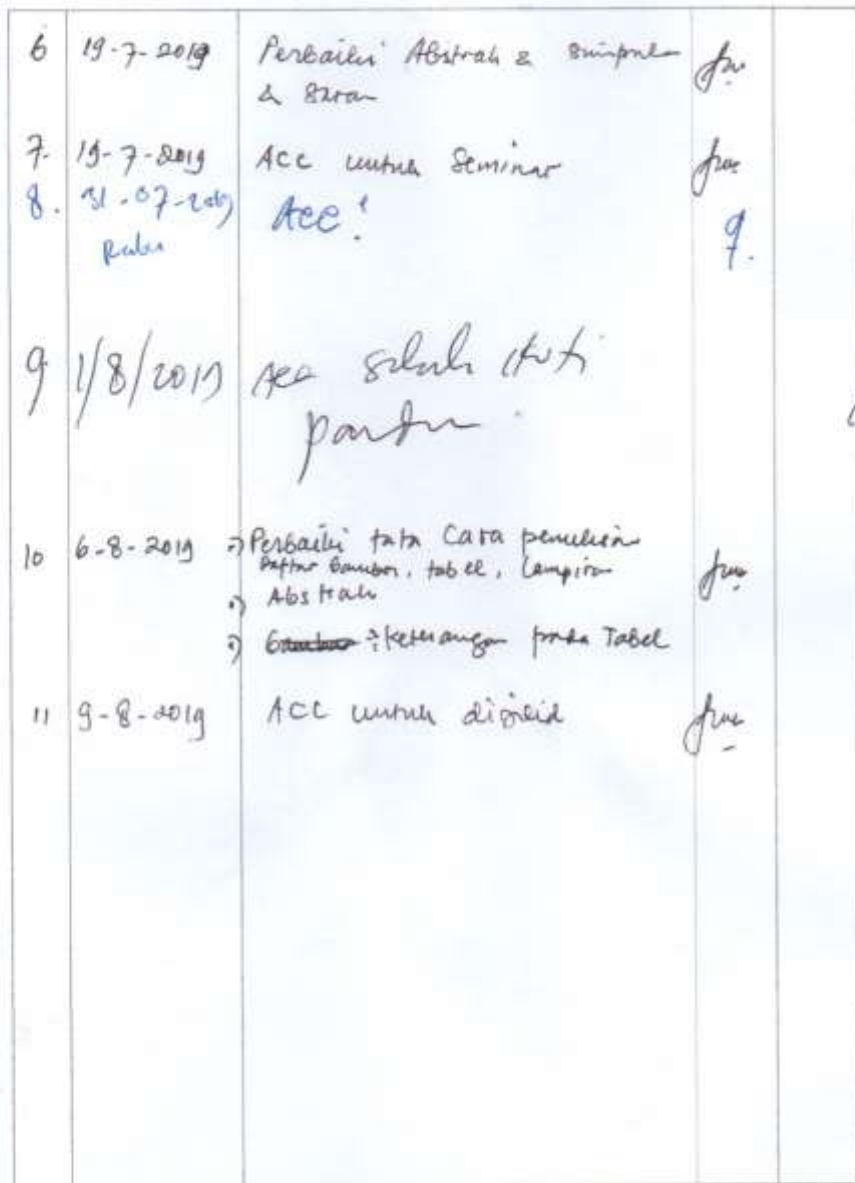 6 19-7-2019 Perbaiki Abstrak & Simpula
& Saran
7. 19-7-2019 ACC untuk Seminar
8. 31-07-2019 Acc!
Rabu
9 1/8/2019 Acc
10 6-8-2019 Perbaiki tata Cara penulisan
Daftar Gambar, tabel, Lampiran
Abstrak
Gambar : Keterangan pada Tabel
11 9-8-2019 ACC untuk dijilid